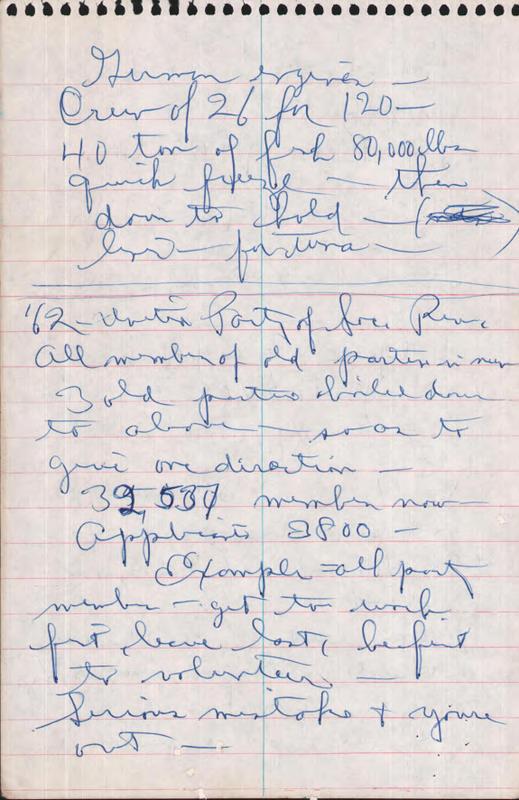 German engines —
Crew of 26 for 120 —
40 ton of fish 80,000 lbs
quick freeze — then
down to hold — (
—
'62 — United Party of Soc. Rev.
All member of old parties in new
3 old parties boiled down
to above — so as to
give one direction —
39,537 member now
Applicants 3800 —
Example = all party
member — get to work
first, leave last, be first
to volunteer —
Serious mistake & youre
out —